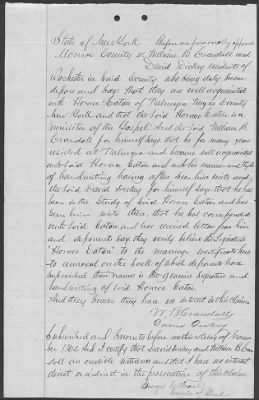 State of New York
Monroe County ss Before me personally appeared
William B. Crandall and
David Dickey residents of
Rochester in said County who being duly sworn
depose and say that they are well acquainted
with Horace Eaton of Palmyra Wayne County
New York and that the said Horace Eaton is a
minister of the Gospel. And the said William B.
Crandall for himself says that he for many years
resided at Palmyra and became well acquainted
with said Horace Eaton and with his manner and style
of handwriting having often seen him write and
the said David Dickey for himself says that he has
been in the study of said Horace Eaton and has
seen him write there that he has corresponded
with said Eaton and has received letters from him
and deponents say they verily believe the signature
"Horace Eaton" to the marriage certificate here
to annexed on the back of which deponents have
subscribed their names is the genuine signature and
handwriting of said Horace Eaton.
And they swear they have no interest in this claim
W. B. Crandall
David Dickey
Subscribed and sworn to before me this day of
1862 And I certify that David Dickey and William B. Cran
dall are credible witnesses and that I have no interest
direct or indirect in the prosecution of this claim